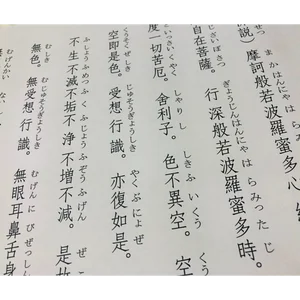 ぜつ まかはんにゃはらみったしん
説）摩訶般若波羅蜜多心
ぎょうじんはんにゃはらみったじ
自在菩薩。行深般若波羅蜜多時。
いっさいくやく しゃりし しきふいくう くう
度一切苦厄。舍利子。色不異空。空
くうそくぜしき じゅそうぎょうしき やくぶにょぜ
空即是色。受想行識。亦復如是。
ふしょうふめつふくふじょうふぞうふげん ぜこ
不生不滅不垢不淨不増不減。是故
むしき むじゅそうぎょうしき むげんにびぜっしん
無色。無受想行識。無眼耳鼻舌身
むげんかい